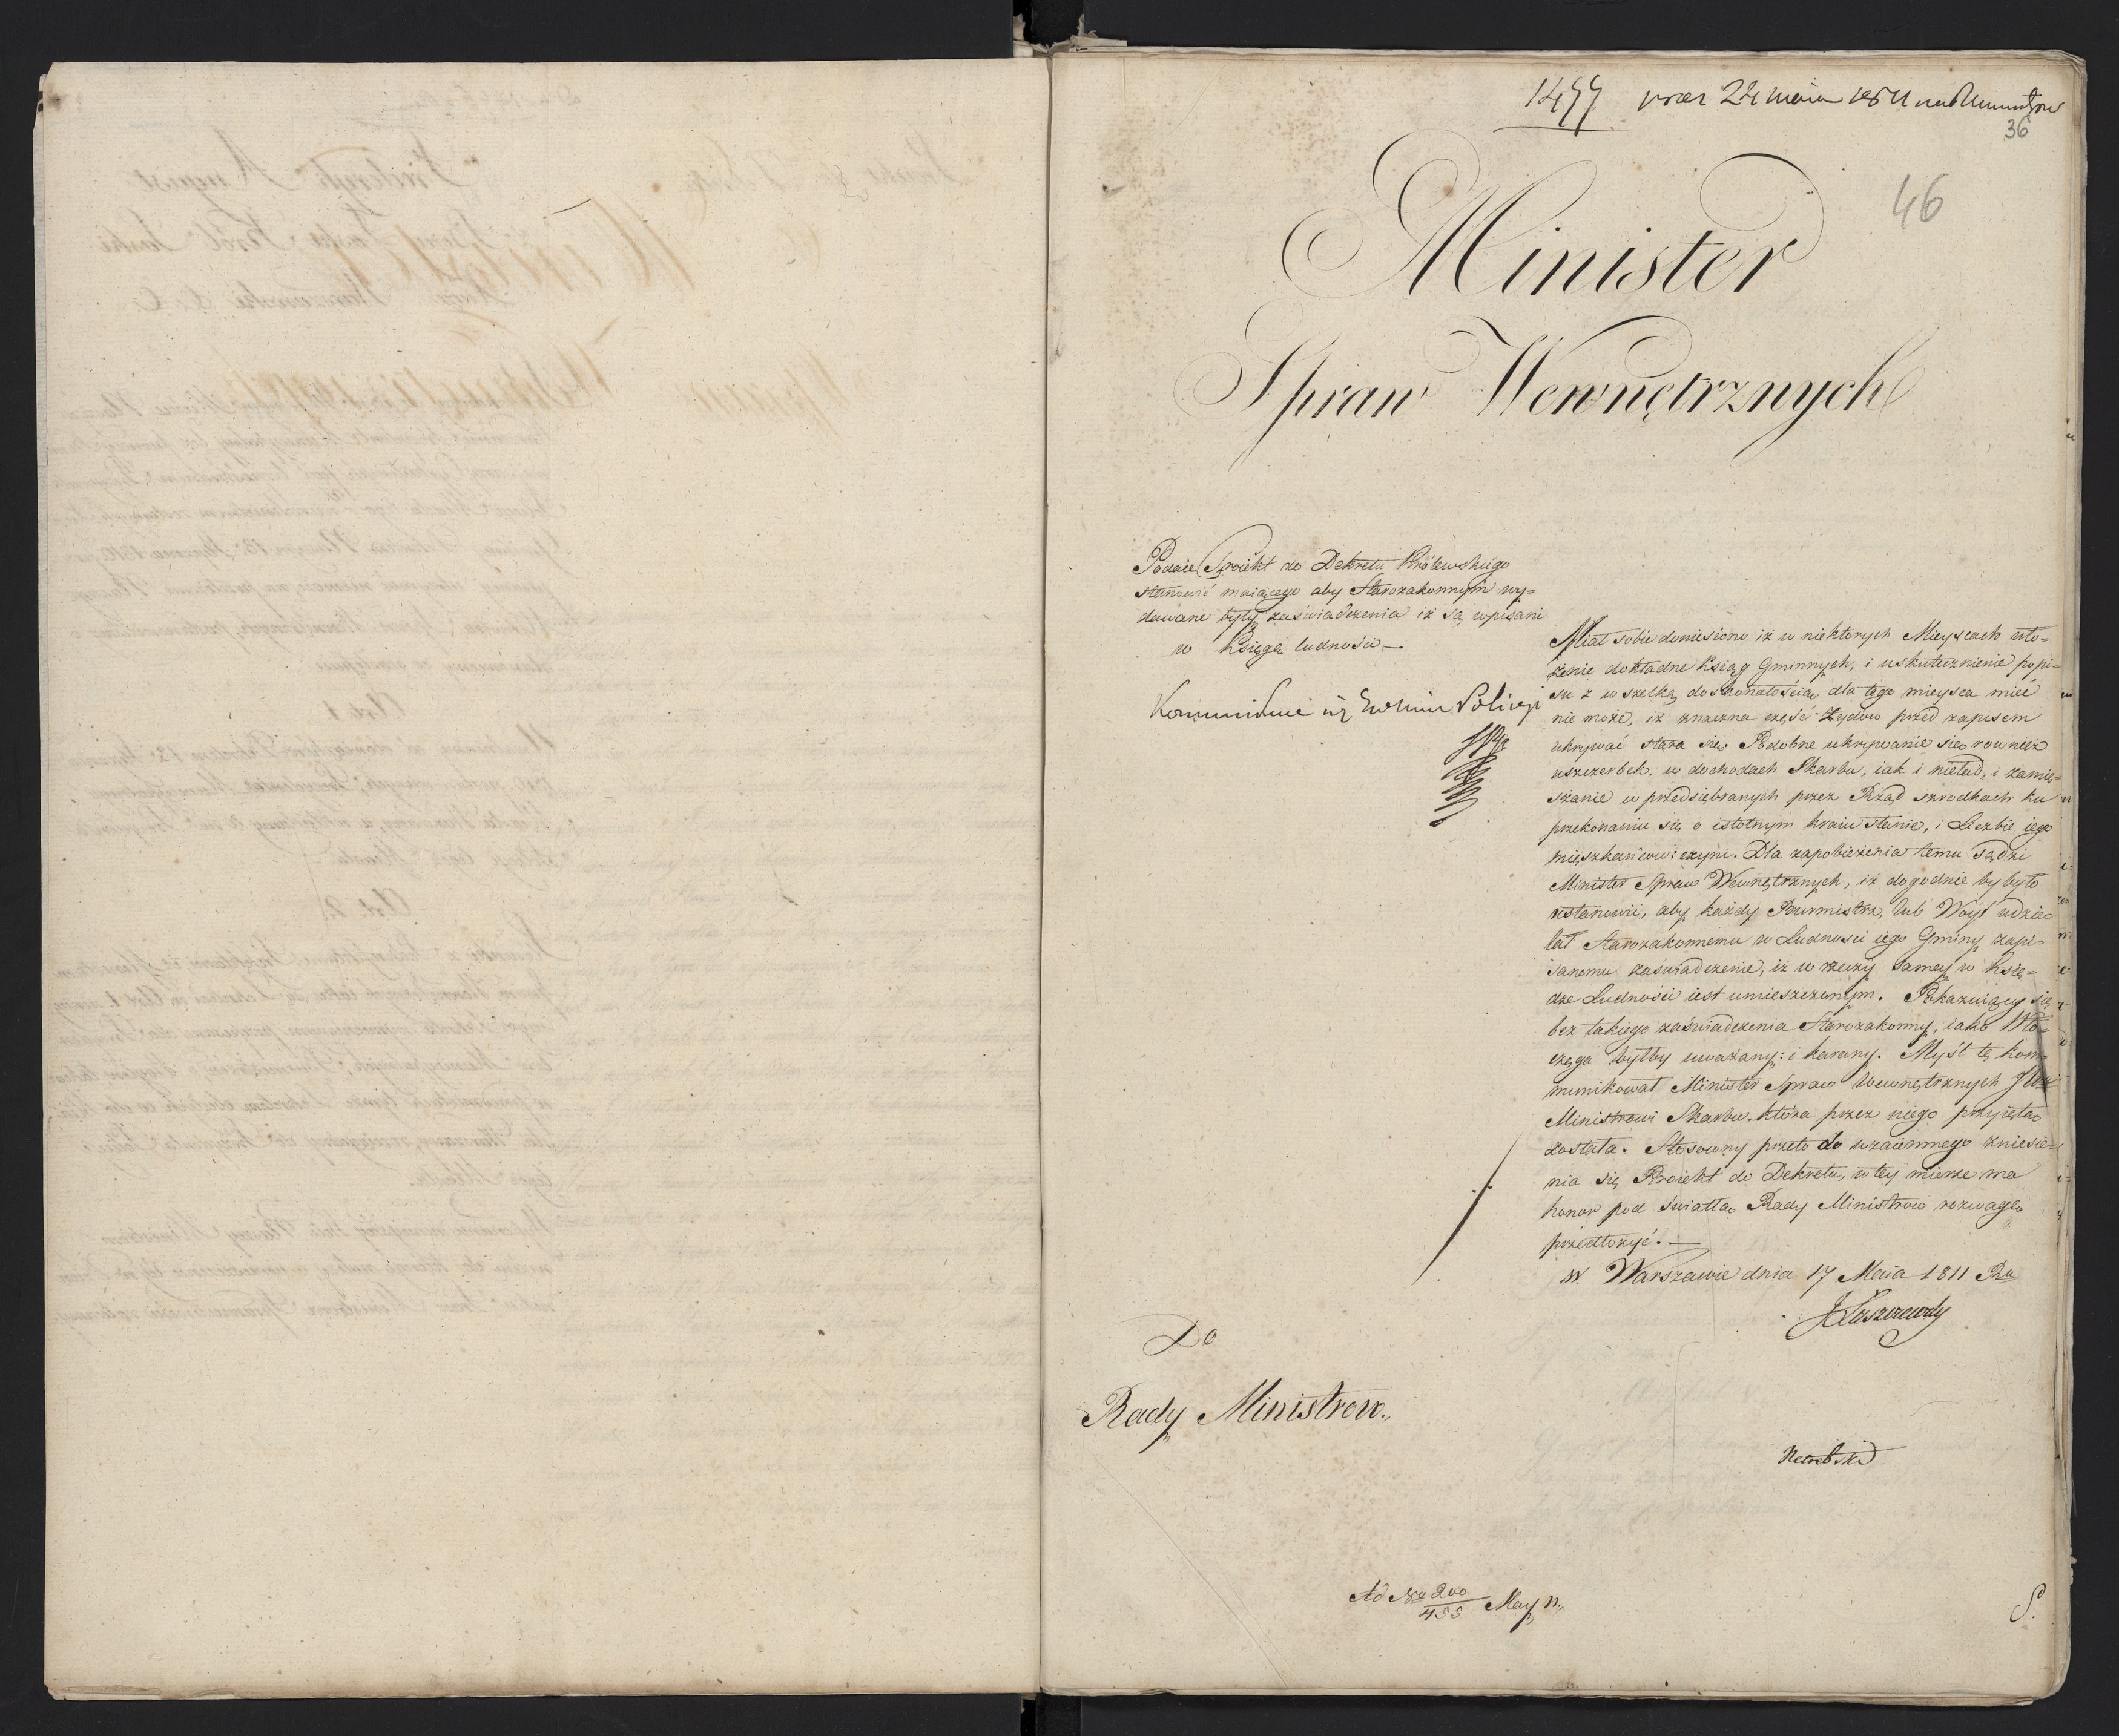 1477
36
46
Minister
Spraw Wewnętrznych
Podaie Proiekt do Dekretu Królewskiego
stanowić maiącego aby Starozakonnym wy=
dawane były zaświadczenia iż są wpisani
w Księgę ludności —
Policyi
Miał sobie doniesiono iż w niektorych Mieyscach uło=
żenie dokładne Ksiąg Gminnych, i uskutecznienie popi=
su z wszelką doskonałością dla tego mieysca mieć
nie może, iż znaczna część Żydow przed zapisem
ukrywać stara się. Podobne ukrywanie się rownież
uszczerbek w dochodach Skarbu, iak i nieład, i zamię=
szanie w przedsiębranych przez Rząd szrodkach ku
przekonaniu się o istotnym kraiu stanie, i Liczbie iego
mięszkańcow: czyni. Dla zapobieżenia temu sądzi
Minister Spraw Wewnętrznych, iż dogodnie by było
ustanowić, aby każdy Burmistrz, lub Woyt udzie=
lał Starozakonnemu w Ludności iego Gminy zapi=
sanemu zaświadczenie, iż w rzeczy samey w Księ=
dze Ludności iest umieszczonym. Pokazuiący się
bez takiego zaświadczenia Starozakonny, iako Wło=
częga byłby uważany: i karany. Myśl tę kom=
munikował Minister Spraw Wewnętrznych JW
Ministrowi Skarbu, która przez niego przyięta
została. Stosowny przeto do wzaiemnego zniesie=
nia się Proiekt do Dekretu, w tey mierze ma
honor pod światłą Rady Ministrow rozwagę
przedłożyć. —
w Warszawie dnia 17 Maia 1811 Ru
JŁuszczewski
Do
Rady Ministrow.,
Ad Nr 200/455 May 11.,
S.